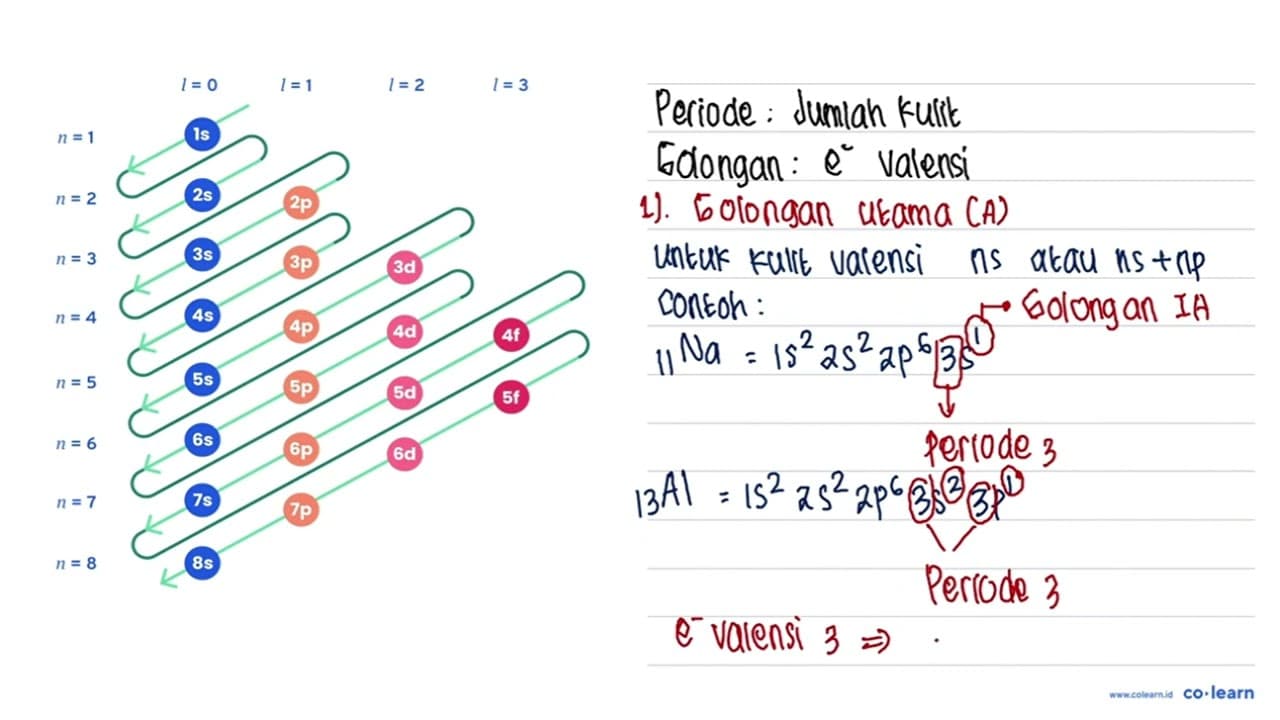 l = 0 l = 1 l = 2 l = 3
n = 1 1s
n = 2 2s 2p
n = 3 3s 3p 3d
n = 4 4s 4p 4d 4f
n = 5 5s 5p 5d 5f
n = 6 6s 6p 6d
n = 7 7s 7p
n = 8 8s
Periode : Jumlah kulit
Golongan : e⁻ valensi
1). Golongan utama (A)
untuk kulit valensi ns atau ns + np
Contoh : Golongan IA
₁₁Na = 1s² 2s² 2p⁶ 3s¹
Periode 3
₁₃Al = 1s² 2s² 2p⁶ 3s² 3p¹
Periode 3
e⁻ valensi 3 ⇒ .
www.colearn.id co·learn